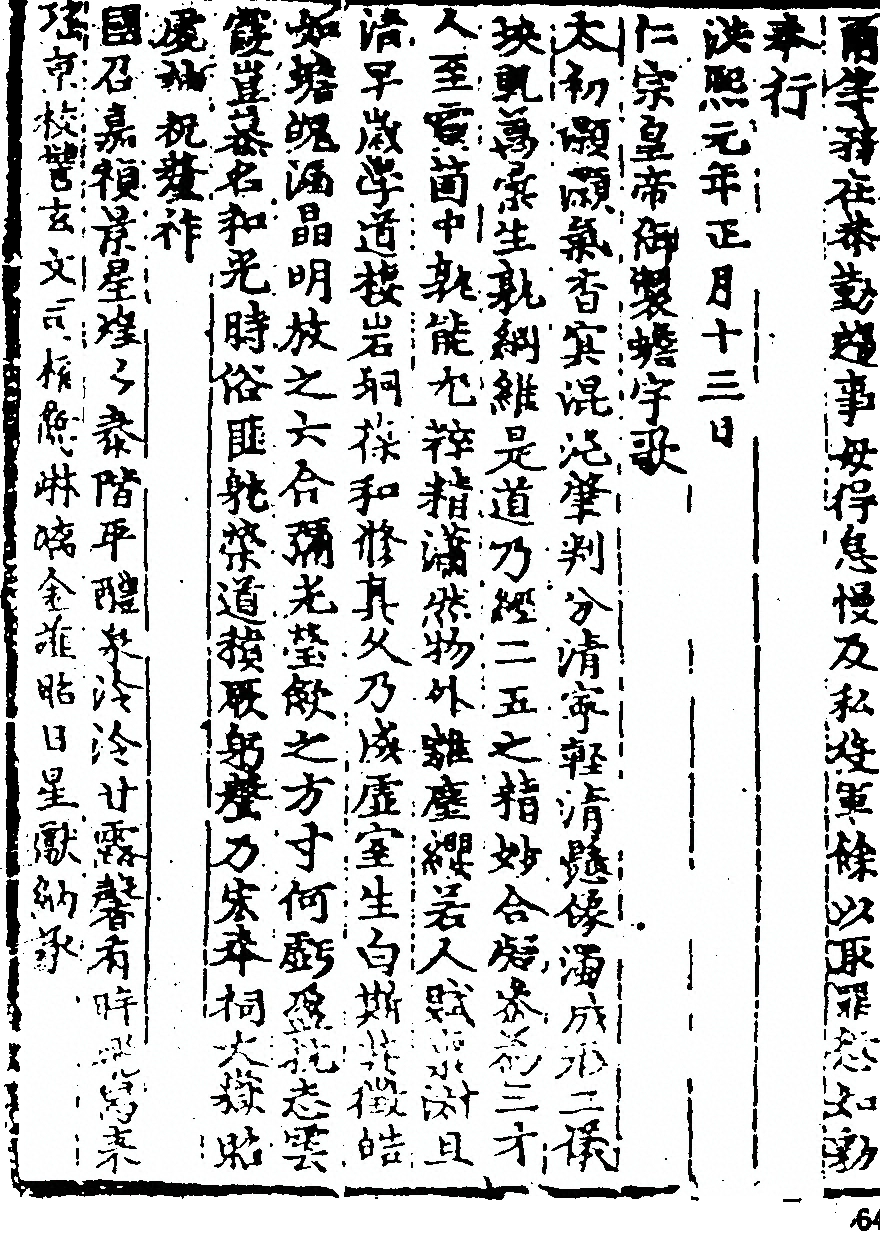 爾等務在恭勤趨事毋得怠慢及私役軍餘以取罪愆如勅
奉行
洪熙元年正月十三日
仁宗皇帝御製蟾宇歌
太初灝灝氣杳冥混沌肇判分清寧輕清懸像濁成形二儀
坱軋萬彙生孰綱維是道乃經二五之精妙合凝參為三才
人至靈箇中孰能尤粹精瀟然物外離塵纓若人賦稟淑且
清早歲學道棲岩坰葆和修真久乃成虛室生白斯其徵皓
如蟾魄涵晶明放之六合彌光瑩歛之方寸何虧盈抗志雲
霞豈慕名和光時俗匪躭榮道積厥躬聲乃宏奉祠大嶽昭
虔祝釐祚
國召嘉禎景星煌々泰階平醴泉泠泠甘露馨有時飛舄來
瑤京校讐玄文司權懸淋漓金薤昭日星獻納承